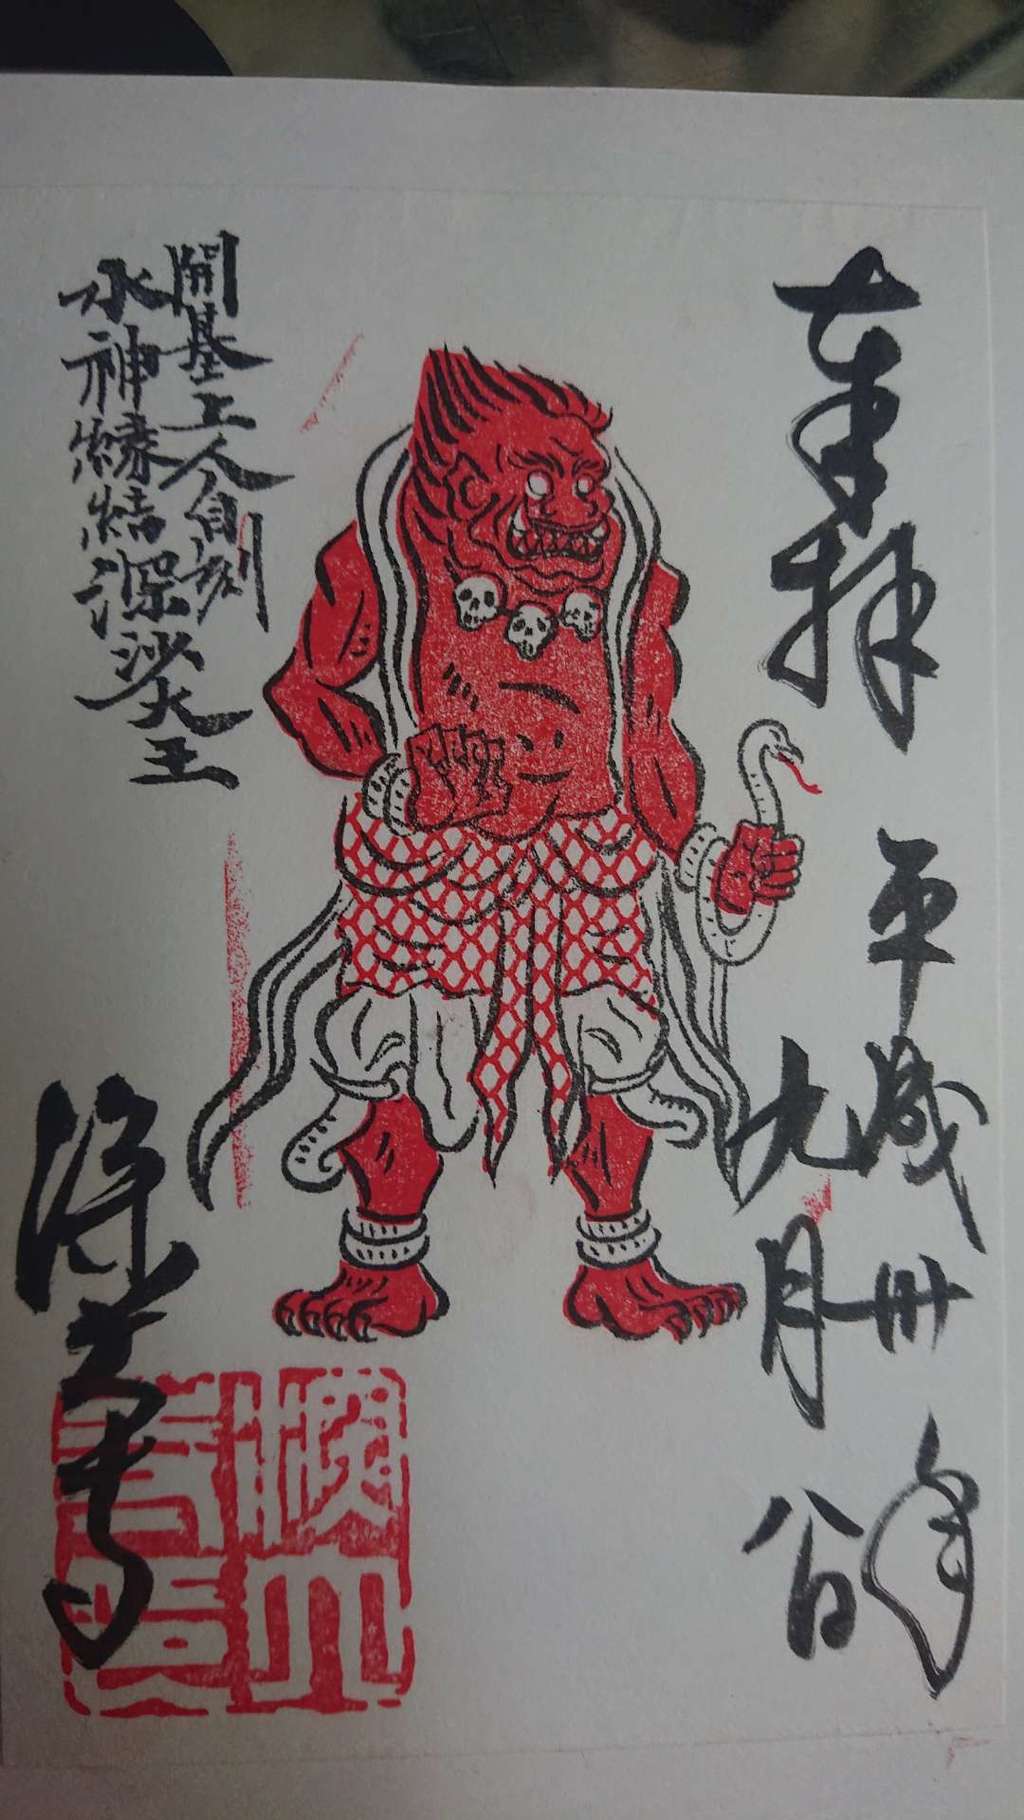 奉拝
平成卅年
九月八日
開基上人自刻
水神縁結深沙大王
深大寺